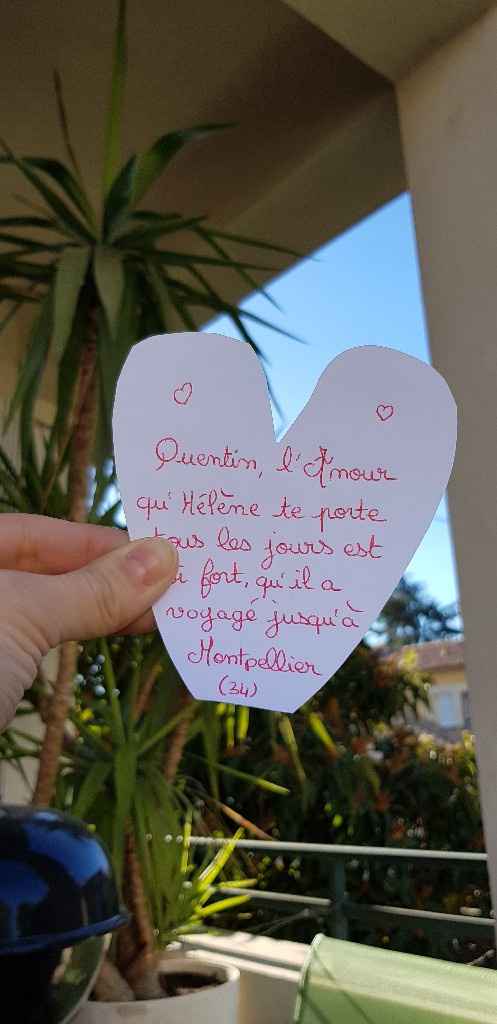 Quentin, l'Amour
qu'Hélène te porte
tous les jours est
si fort, qu'il a
voyagé jusqu'à
Montpellier
(34)